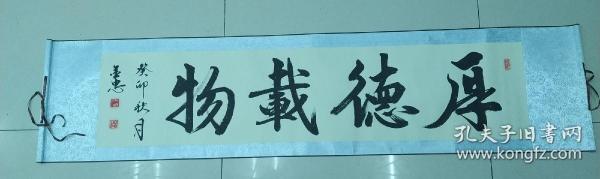 厚德載物
癸卯秋月
孔夫子旧书网
www.kongfz.com